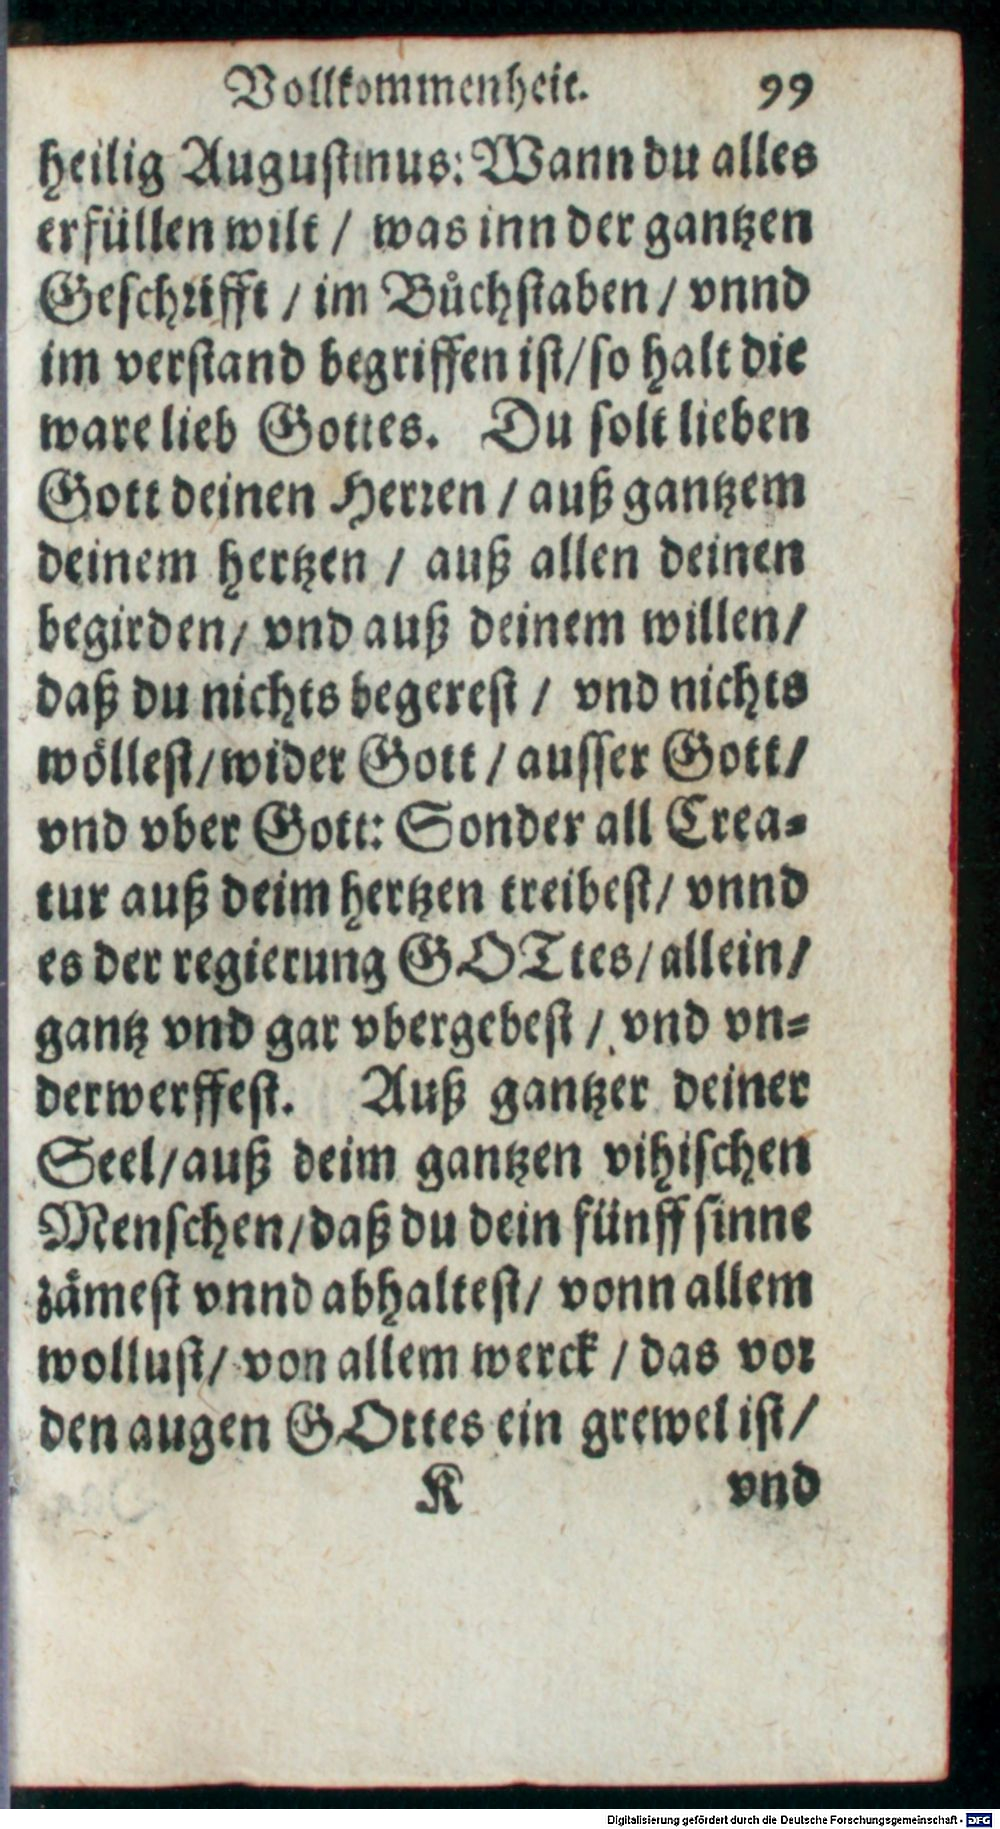 Vollkommenheit. 99
heilig Augustinus: Wann du alles
erfüllen wilt / was inn der gantzen
Geschrifft / im Bůchstaben / vnnd
im verstand begriffen ist / so halt die
ware lieb Gottes. Du solt lieben
Gott deinen Herren / auß gantzem
deinem hertzen / auß allen deinen
begirden / vnd auß deinem willen /
daß du nichts begerest / vnd nichts
wöllest / wider Gott / ausser Gott /
vnd vber Gott: Sonder all Crea-
tur auß deim hertzen treibest / vnnd
es der regierung GOTtes / allein /
gantz vnd gar vbergebest / vnd vn-
derwerffest. Auß gantzer deiner
Seel / auß deim gantzen vihischen
Menschen / daß du dein fünff sinne
zämest vnnd abhaltest / vonn allem
wollust / von allem werck / das vor
den augen GOttes ein grewel ist /
K vnd
Digitalisierung gefördert durch die Deutsche Forschungsgemeinschaft - DFG